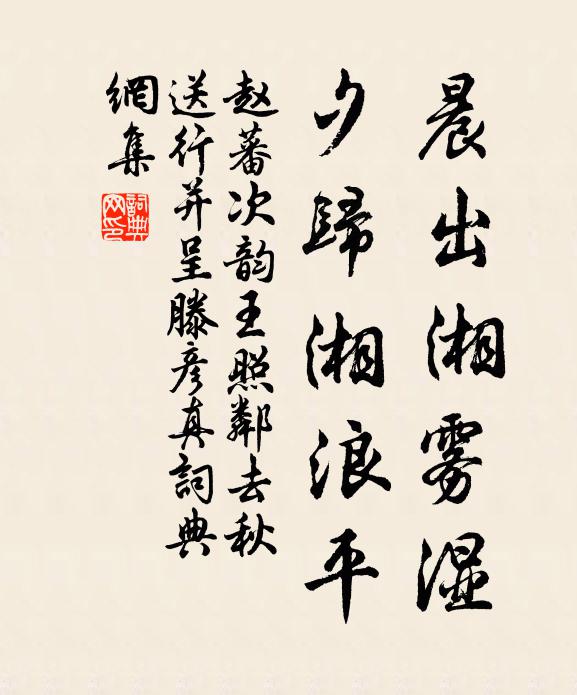 晨出湘雾湿
夕歸湘浪平
赵蕃次韵王照鄰去秋
送行并呈滕彦真詞典
網集
詞典网印